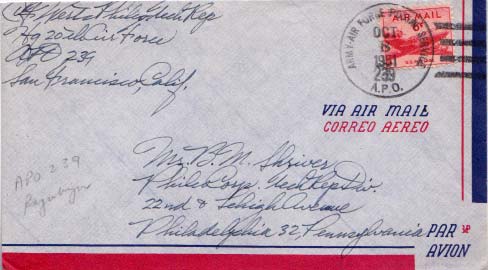 Philco Tech Rep
Hq 20th Air Force
APO 239
San Francisco, Calif.
ARMY-AIR FORCE POSTAL SERVICE
OCT
8
1951
239
A.P.O.
AIR MAIL
6¢
VIA AIR MAIL
CORREO AEREO
APO 239
Mr. B. M. Shriver
Philco Corp. Tech Rep Div.
22nd & Lehigh Avenue
Philadelphia 32, Pennsylvania
PAR
AVION